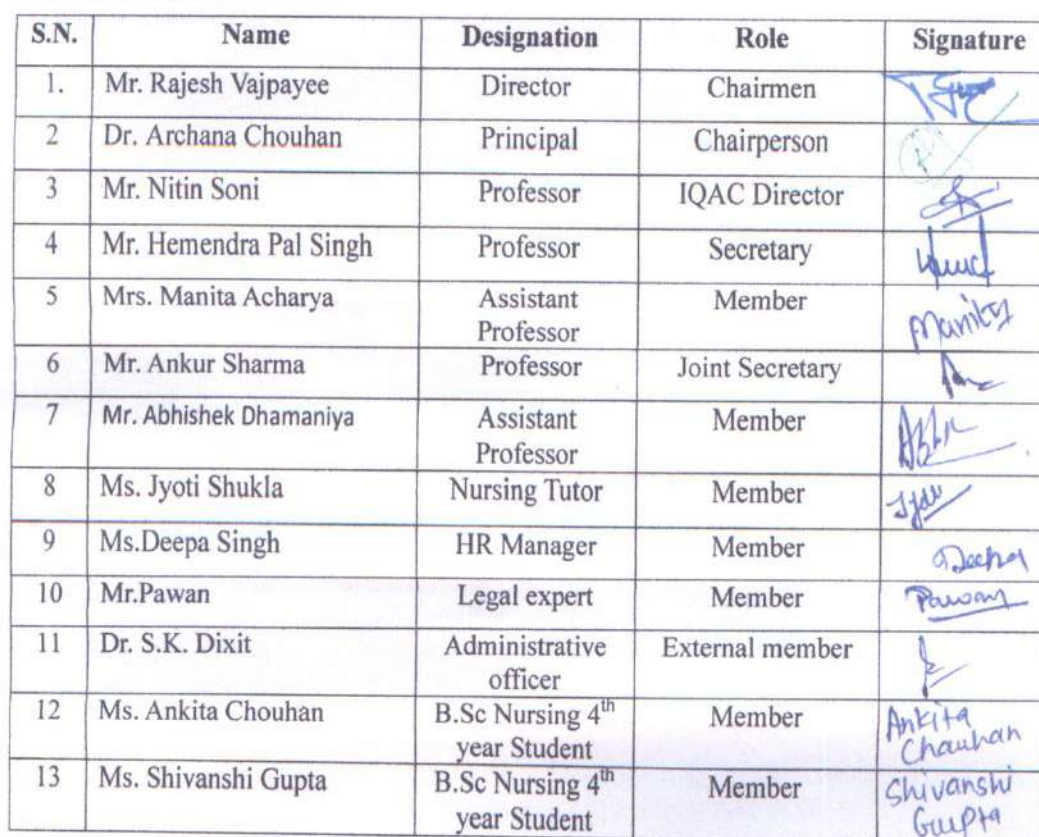 S.N. Name Designation Role Signature
1. Mr. Rajesh Vajpayee Director Chairmen
2 Dr. Archana Chouhan Principal Chairperson
3 Mr. Nitin Soni Professor IQAC Director
4 Mr. Hemendra Pal Singh Professor Secretary
5 Mrs. Manita Acharya Assistant Member Manita
Professor
6 Mr. Ankur Sharma Professor Joint Secretary
7 Mr. Abhishek Dhamaniya Assistant Member
Professor
8 Ms. Jyoti Shukla Nursing Tutor Member
9 Ms.Deepa Singh HR Manager Member Deepa
10 Mr.Pawan Legal expert Member Pawan
11 Dr. S.K. Dixit Administrative External member
officer
12 Ms. Ankita Chouhan B.Sc Nursing 4th Member Ankita
year Student Chauhan
13 Ms. Shivanshi Gupta B.Sc Nursing 4th Member Shivanshi
year Student Gupta